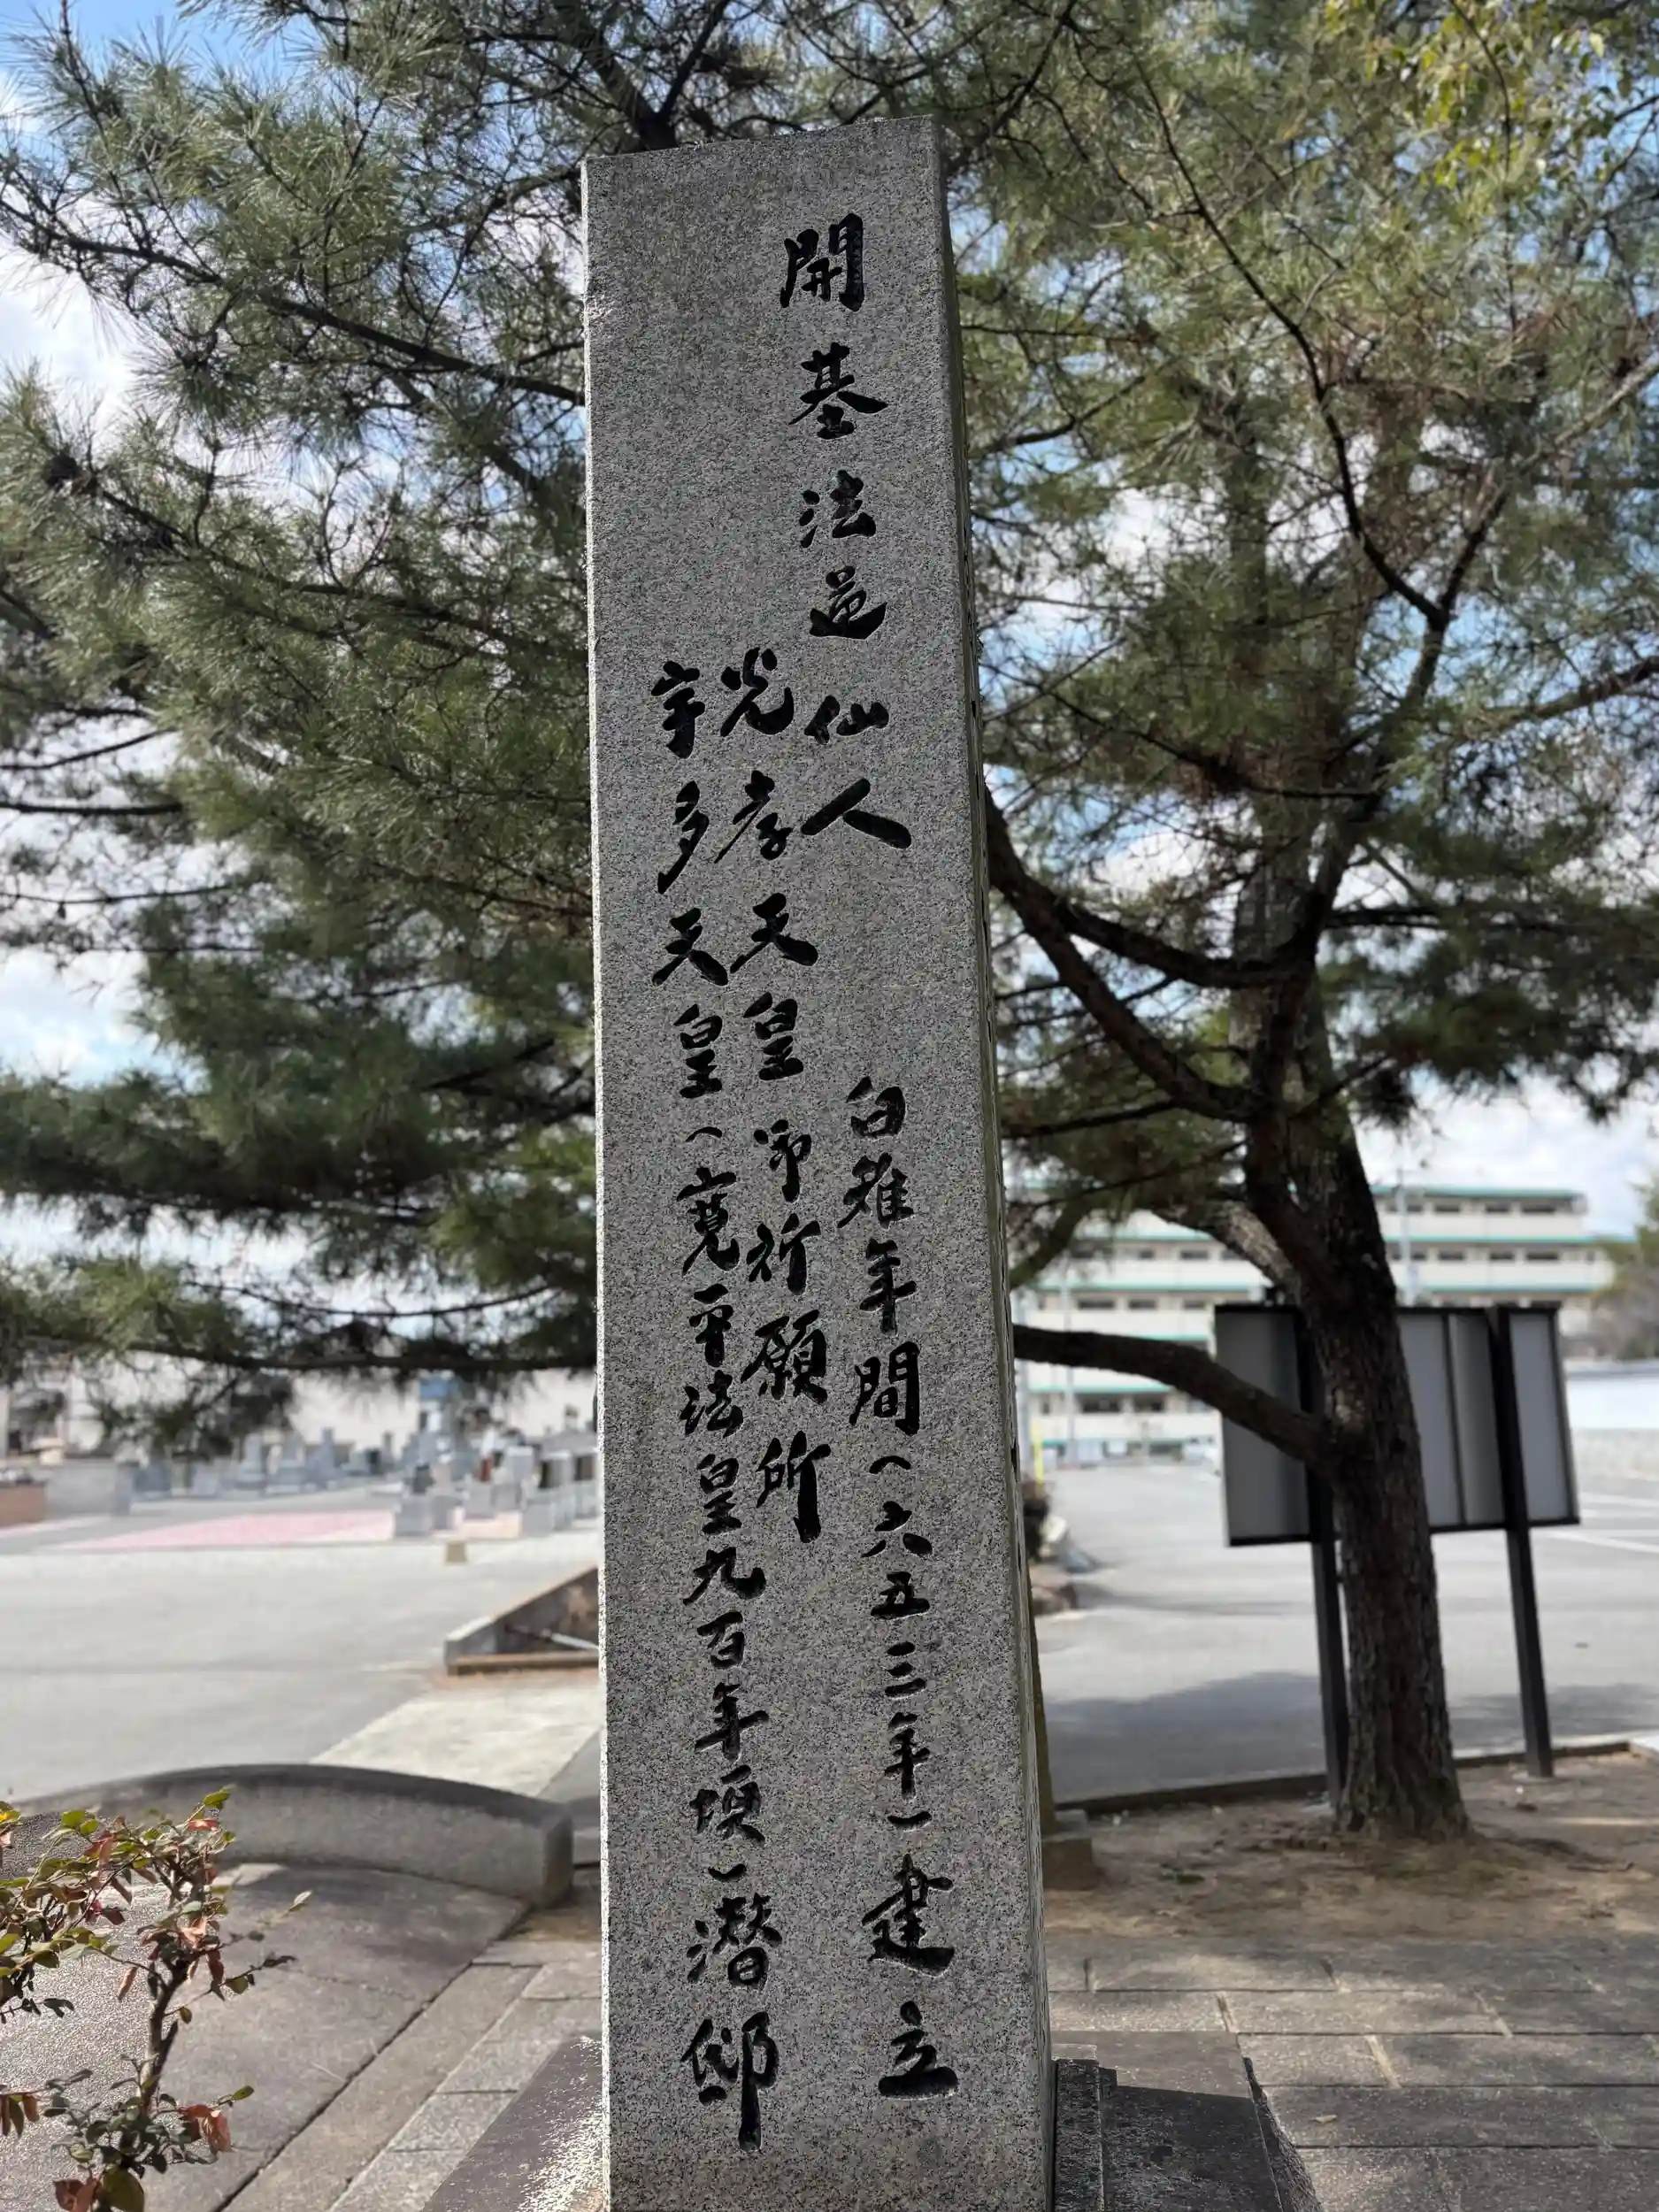 開基法道仙人　白雉年間（六五三年）建立
光孝天皇御祈願所
宇多天皇（寛平法皇九百年頃）潜邸